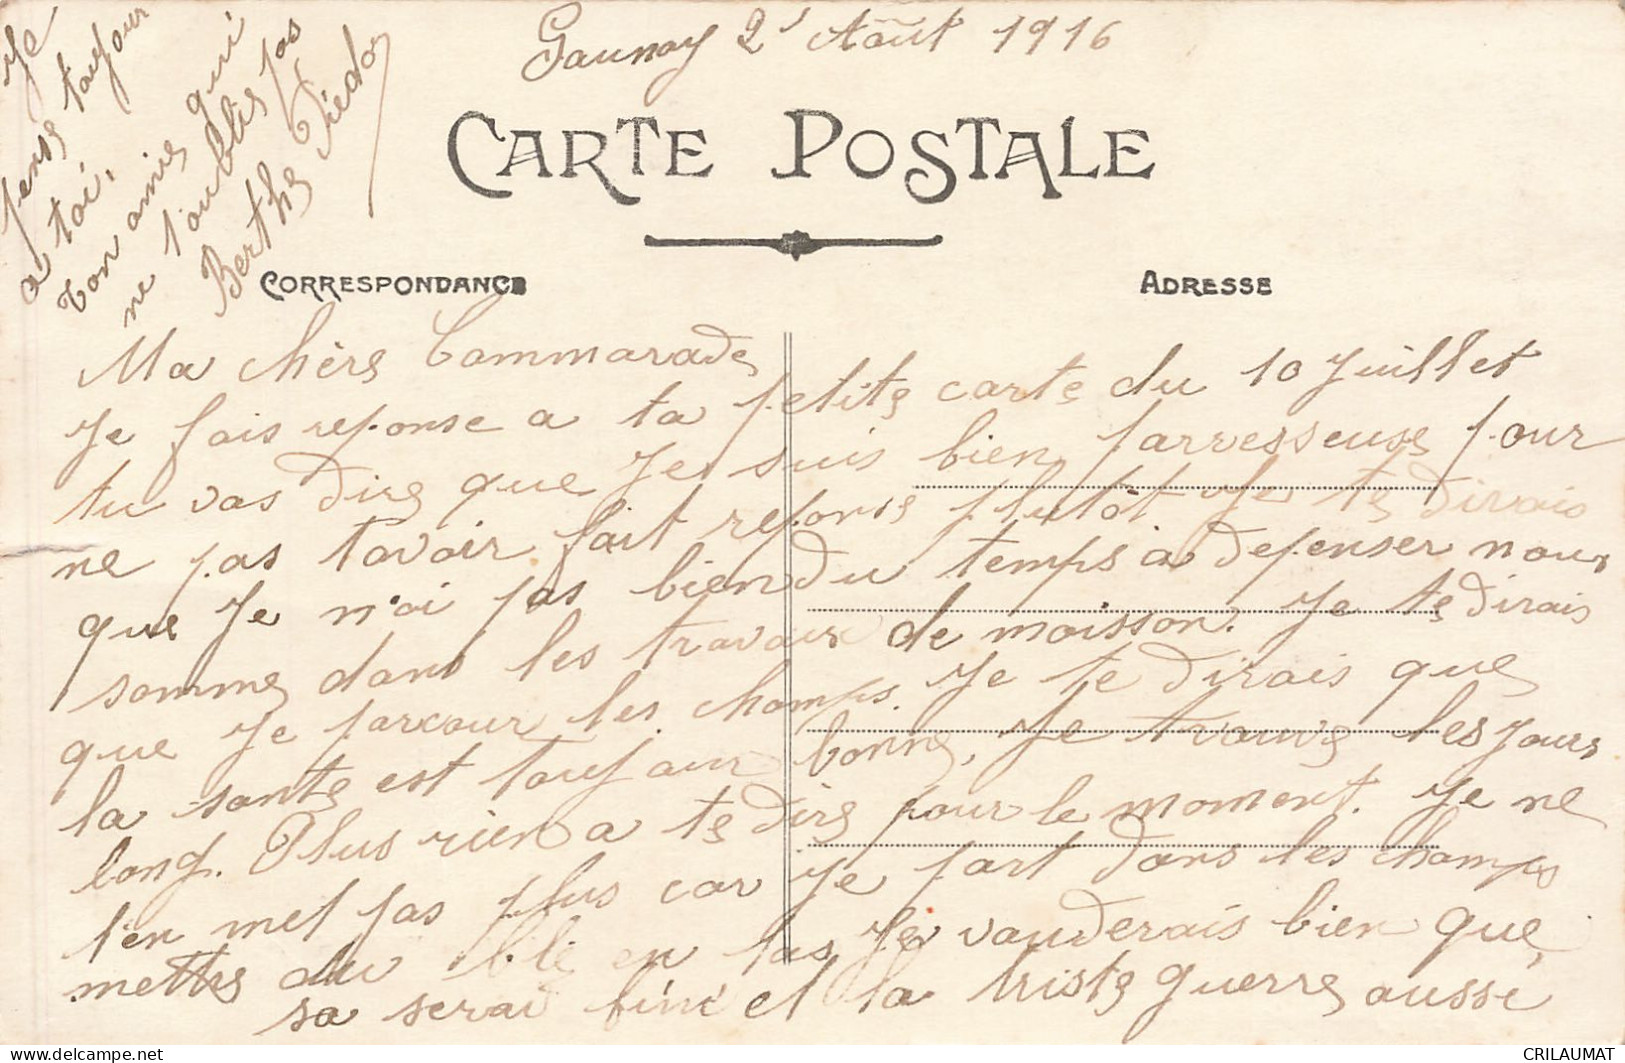 2 Août 1916
CARTE POSTALE
CORRESPONDANCE
ADRESSE
Ma chère Commarade
Je fais reponse a ta petite carte du 10 Juillet
tu vas dire que Je suis bien parresseuse pour
ne pas tavoir fait reponse plutôt Je te dirais
que Je n'ai pas bien du temps a depenser nous
somme dans les travaux de moisson. Je te dirais
que Je parcour les champs. Je te dirais que
la sante est toujour bonne, Je trouve les jours
long. Plus rien a te dire pour le moment. Je ne
t'en met pas plus car Je part dans les champs
mettre du blé en tas Je vauderais bien que
sa serai fini et la triste guerre aussi
Je
pense toujour
a toi,
ton amie qui
ne t'oublis pas
Berthe
CRILAUMAT